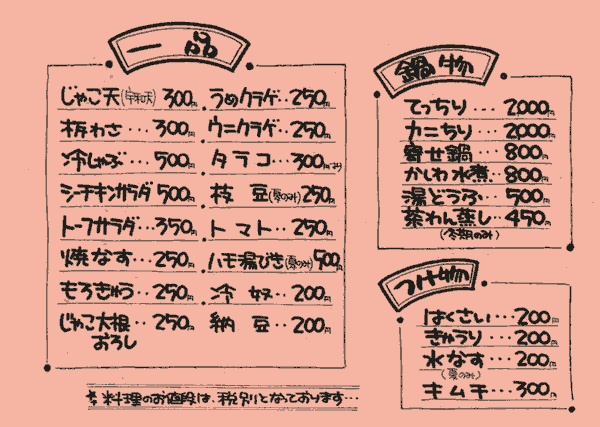 一品
じゃこ天(宇和天) 300円
板わさ・・・300円
冷しゃぶ・・・500円
シーチキンサラダ 500円
トーフサラダ・・・350円
焼なす・・・250円
もろきゅう・・250円
じゃこ大根おろし・・250円
うめクラゲ・・250円
ウニクラゲ・・250円
タラコ・・・300円より
枝豆(夏のみ)250円
トマト・・・250円
ハモ湯びき(夏のみ)500円
冷奴・・200円
納豆・・200円
鍋物
てっちり・・・2,000円
カニちり・・・2,000円
寄せ鍋・・・800円
かしわ水煮・・800円
湯どうふ・・・500円
茶わん蒸し・・450円
(冬期のみ)
つけ物
はくさい・・・200円
きゅうり・・・200円
水なす・・・200円
(夏のみ)
キムチ・・・300円
※料理のお値段は、税別となっております・・・